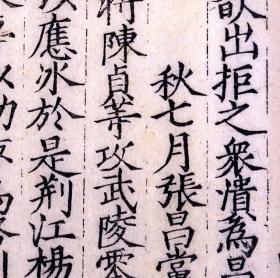 出拒之衆潰為昌
秋七月張昌黨
將陳貞等攻武陵零
應氷於是荆江楊